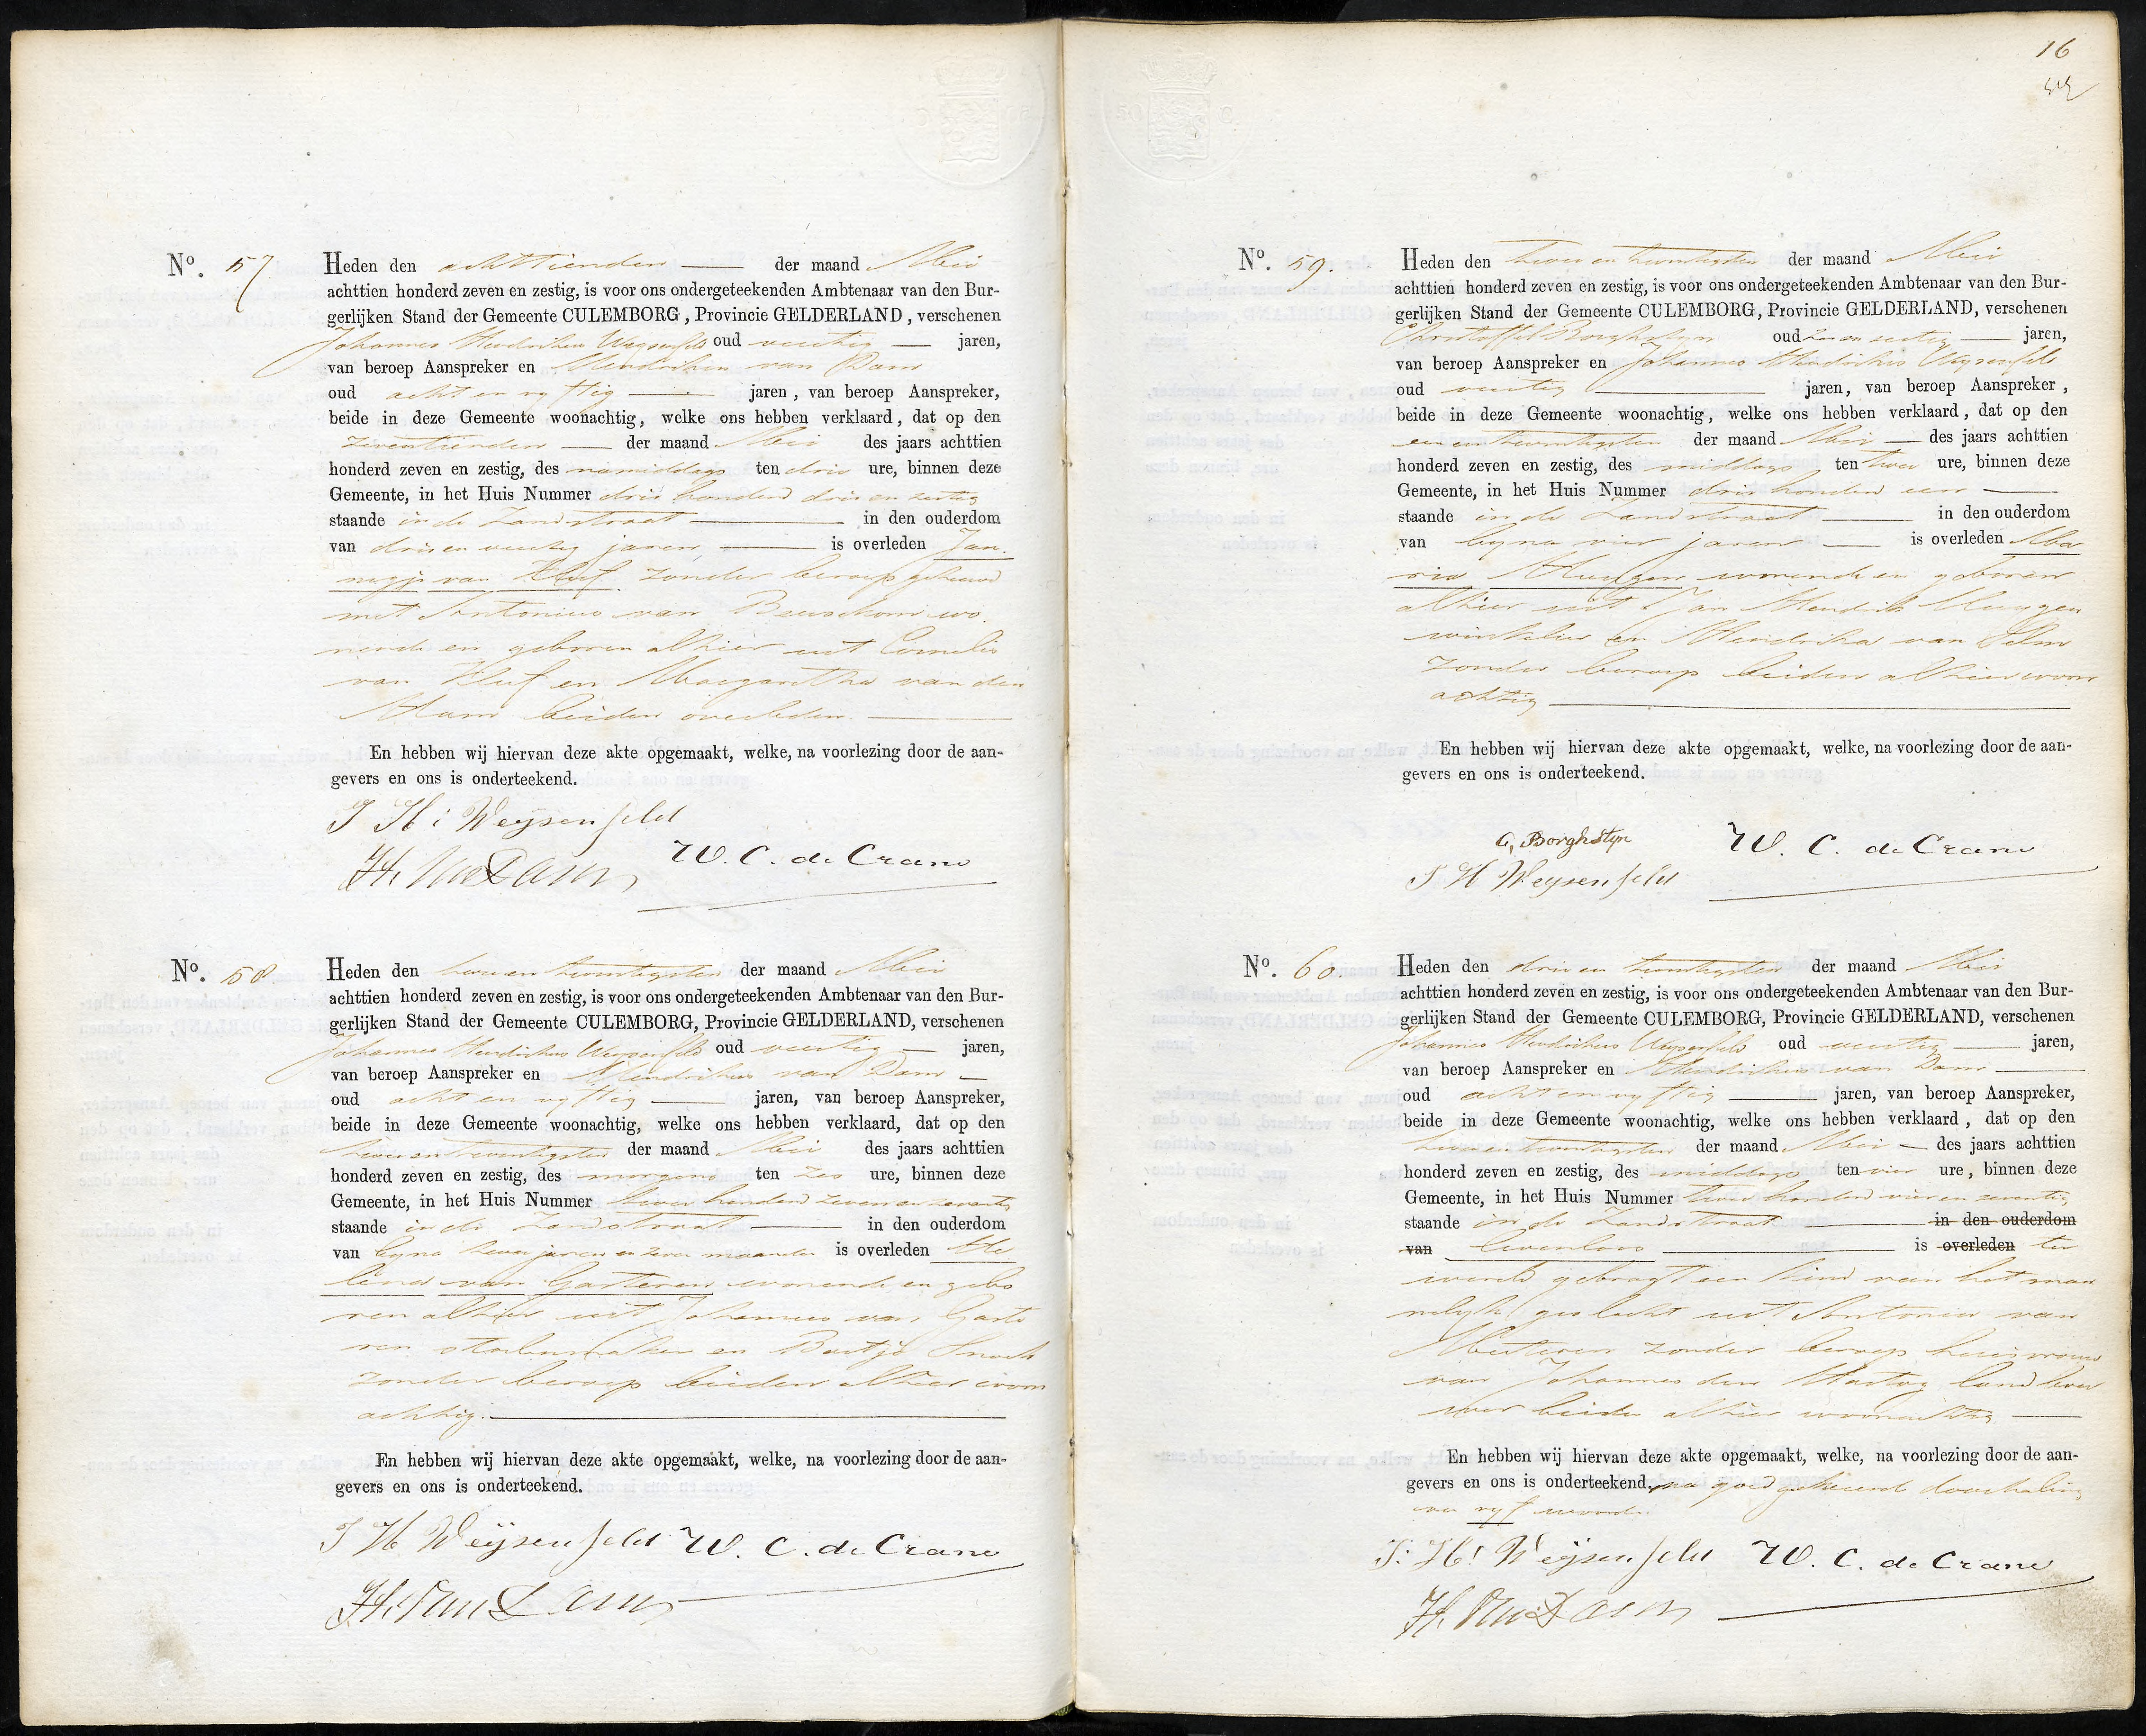 Nº. 57
Heden den achttienden der maand Mei
achttien honderd zeven en zestig, is voor ons ondergeteekenden Ambtenaar van den Bur-
gerlijken Stand der Gemeente CULEMBORG, Provincie GELDERLAND, verschenen
Johannes Hendrikus Weysenfeld oud veertig jaren,
van beroep Aanspreker en Hendrikus van Dam
oud acht en vyftig jaren, van beroep Aanspreker,
beide in deze Gemeente woonachtig, welke ons hebben verklaard, dat op den
zeventienden der maand Mei des jaars achttien
honderd zeven en zestig, des namiddags ten drie ure, binnen deze
Gemeente, in het Huis Nummer drie honderd drie en zestig
staande in de Zandstraat in den ouderdom
van drie en veertig jaren, is overleden Jan
negje van Kleef zonder beroep gehuwd
met Antonius van Beusekom wo
nende en geboren alhier uit Cornelis
van Kleef en Margaretha van den
Ham beiden overleden
En hebben wij hiervan deze akte opgemaakt, welke, na voorlezing door de aan-
gevers en ons is onderteekend.
J H: Weÿsenfeld
W. C. de Crane
H. van Dam
Nº. 58
Heden den twee en twentigsten der maand Mei
achttien honderd zeven en zestig, is voor ons ondergeteekenden Ambtenaar van den Bur-
gerlijken Stand der Gemeente CULEMBORG, Provincie GELDERLAND, verschenen
Johannes Hendrikus Weysenfeld oud veertig jaren,
van beroep Aanspreker en Hendrikus van Dam
oud acht en vyftig jaren, van beroep Aanspreker,
beide in deze Gemeente woonachtig, welke ons hebben verklaard, dat op den
twee en twentigsten der maand Mei des jaars achttien
honderd zeven en zestig, des morgens ten zes ure, binnen deze
Gemeente, in het Huis Nummer twee honderd zeven en zeventig
staande in de Zandstraat in den ouderdom
van byna twee jaren en twee maanden is overleden
van Garderen wonende en gebo
ren alhier uit Johannes van Garde
ren stoelenmaker en Baatje Snoek
zonder beroep beiden alhier woon
achtig.
En hebben wij hiervan deze akte opgemaakt, welke, na voorlezing door de aan-
gevers en ons is onderteekend.
J H Weÿsenfeld W. C. de Crane
H. van Dam
16
Nº. 59.
Heden den twee en twentigsten der maand Mei
achttien honderd zeven en zestig, is voor ons ondergeteekenden Ambtenaar van den Bur-
gerlijken Stand der Gemeente CULEMBORG, Provincie GELDERLAND, verschenen
Christoffel Borghstyn oud zes en sestig jaren,
van beroep Aanspreker en Johannes Hendrikus Weysenfeld
oud veertig jaren, van beroep Aanspreker,
beide in deze Gemeente woonachtig, welke ons hebben verklaard, dat op den
een en twentigsten der maand Mei des jaars achttien
honderd zeven en zestig, des middags ten twee ure, binnen deze
Gemeente, in het Huis Nummer drie honderd een
staande in de Zandstraat in den ouderdom
van byna vier jaren is overleden Ma
ria Huygen wonende en geboren
alhier uit Jan Hendrik Huygen
winkelier en Hendrika van Pelm
zonder beroep beiden alhier woon
achtig
En hebben wij hiervan deze akte opgemaakt, welke, na voorlezing door de aan-
gevers en ons is onderteekend.
C. Borghstyn
W. C. de Crane
J H Weysenfeld
Nº. 60.
Heden den drie en twentigsten der maand Mei
achttien honderd zeven en zestig, is voor ons ondergeteekenden Ambtenaar van den Bur-
gerlijken Stand der Gemeente CULEMBORG, Provincie GELDERLAND, verschenen
Johannes Hendrikus Weysenfeld oud veertig jaren,
van beroep Aanspreker en Hendrikus van Dam
oud acht en vyftig jaren, van beroep Aanspreker,
beide in deze Gemeente woonachtig, welke ons hebben verklaard, dat op den
twee en twentigsten der maand Mei des jaars achttien
honderd zeven en zestig, des middags ten vier ure, binnen deze
Gemeente, in het Huis Nummer twee honderd vier en zeventig
staande in de Zandstraat in den ouderdom
van levenloos is overleden ter
wereld gebragt een kind van het man
nelyk geslacht uit Antonia van
Meeteren zonder beroep huisvrouw
van Johannes den Hartog landbou
wer beide alhier woonachtig
En hebben wij hiervan deze akte opgemaakt, welke, na voorlezing door de aan-
gevers en ons is onderteekend. na goedgekeurde doorhaling
van vyf woorden
J. H: Weÿsenfeld W. C. de Crane
H. van Dam